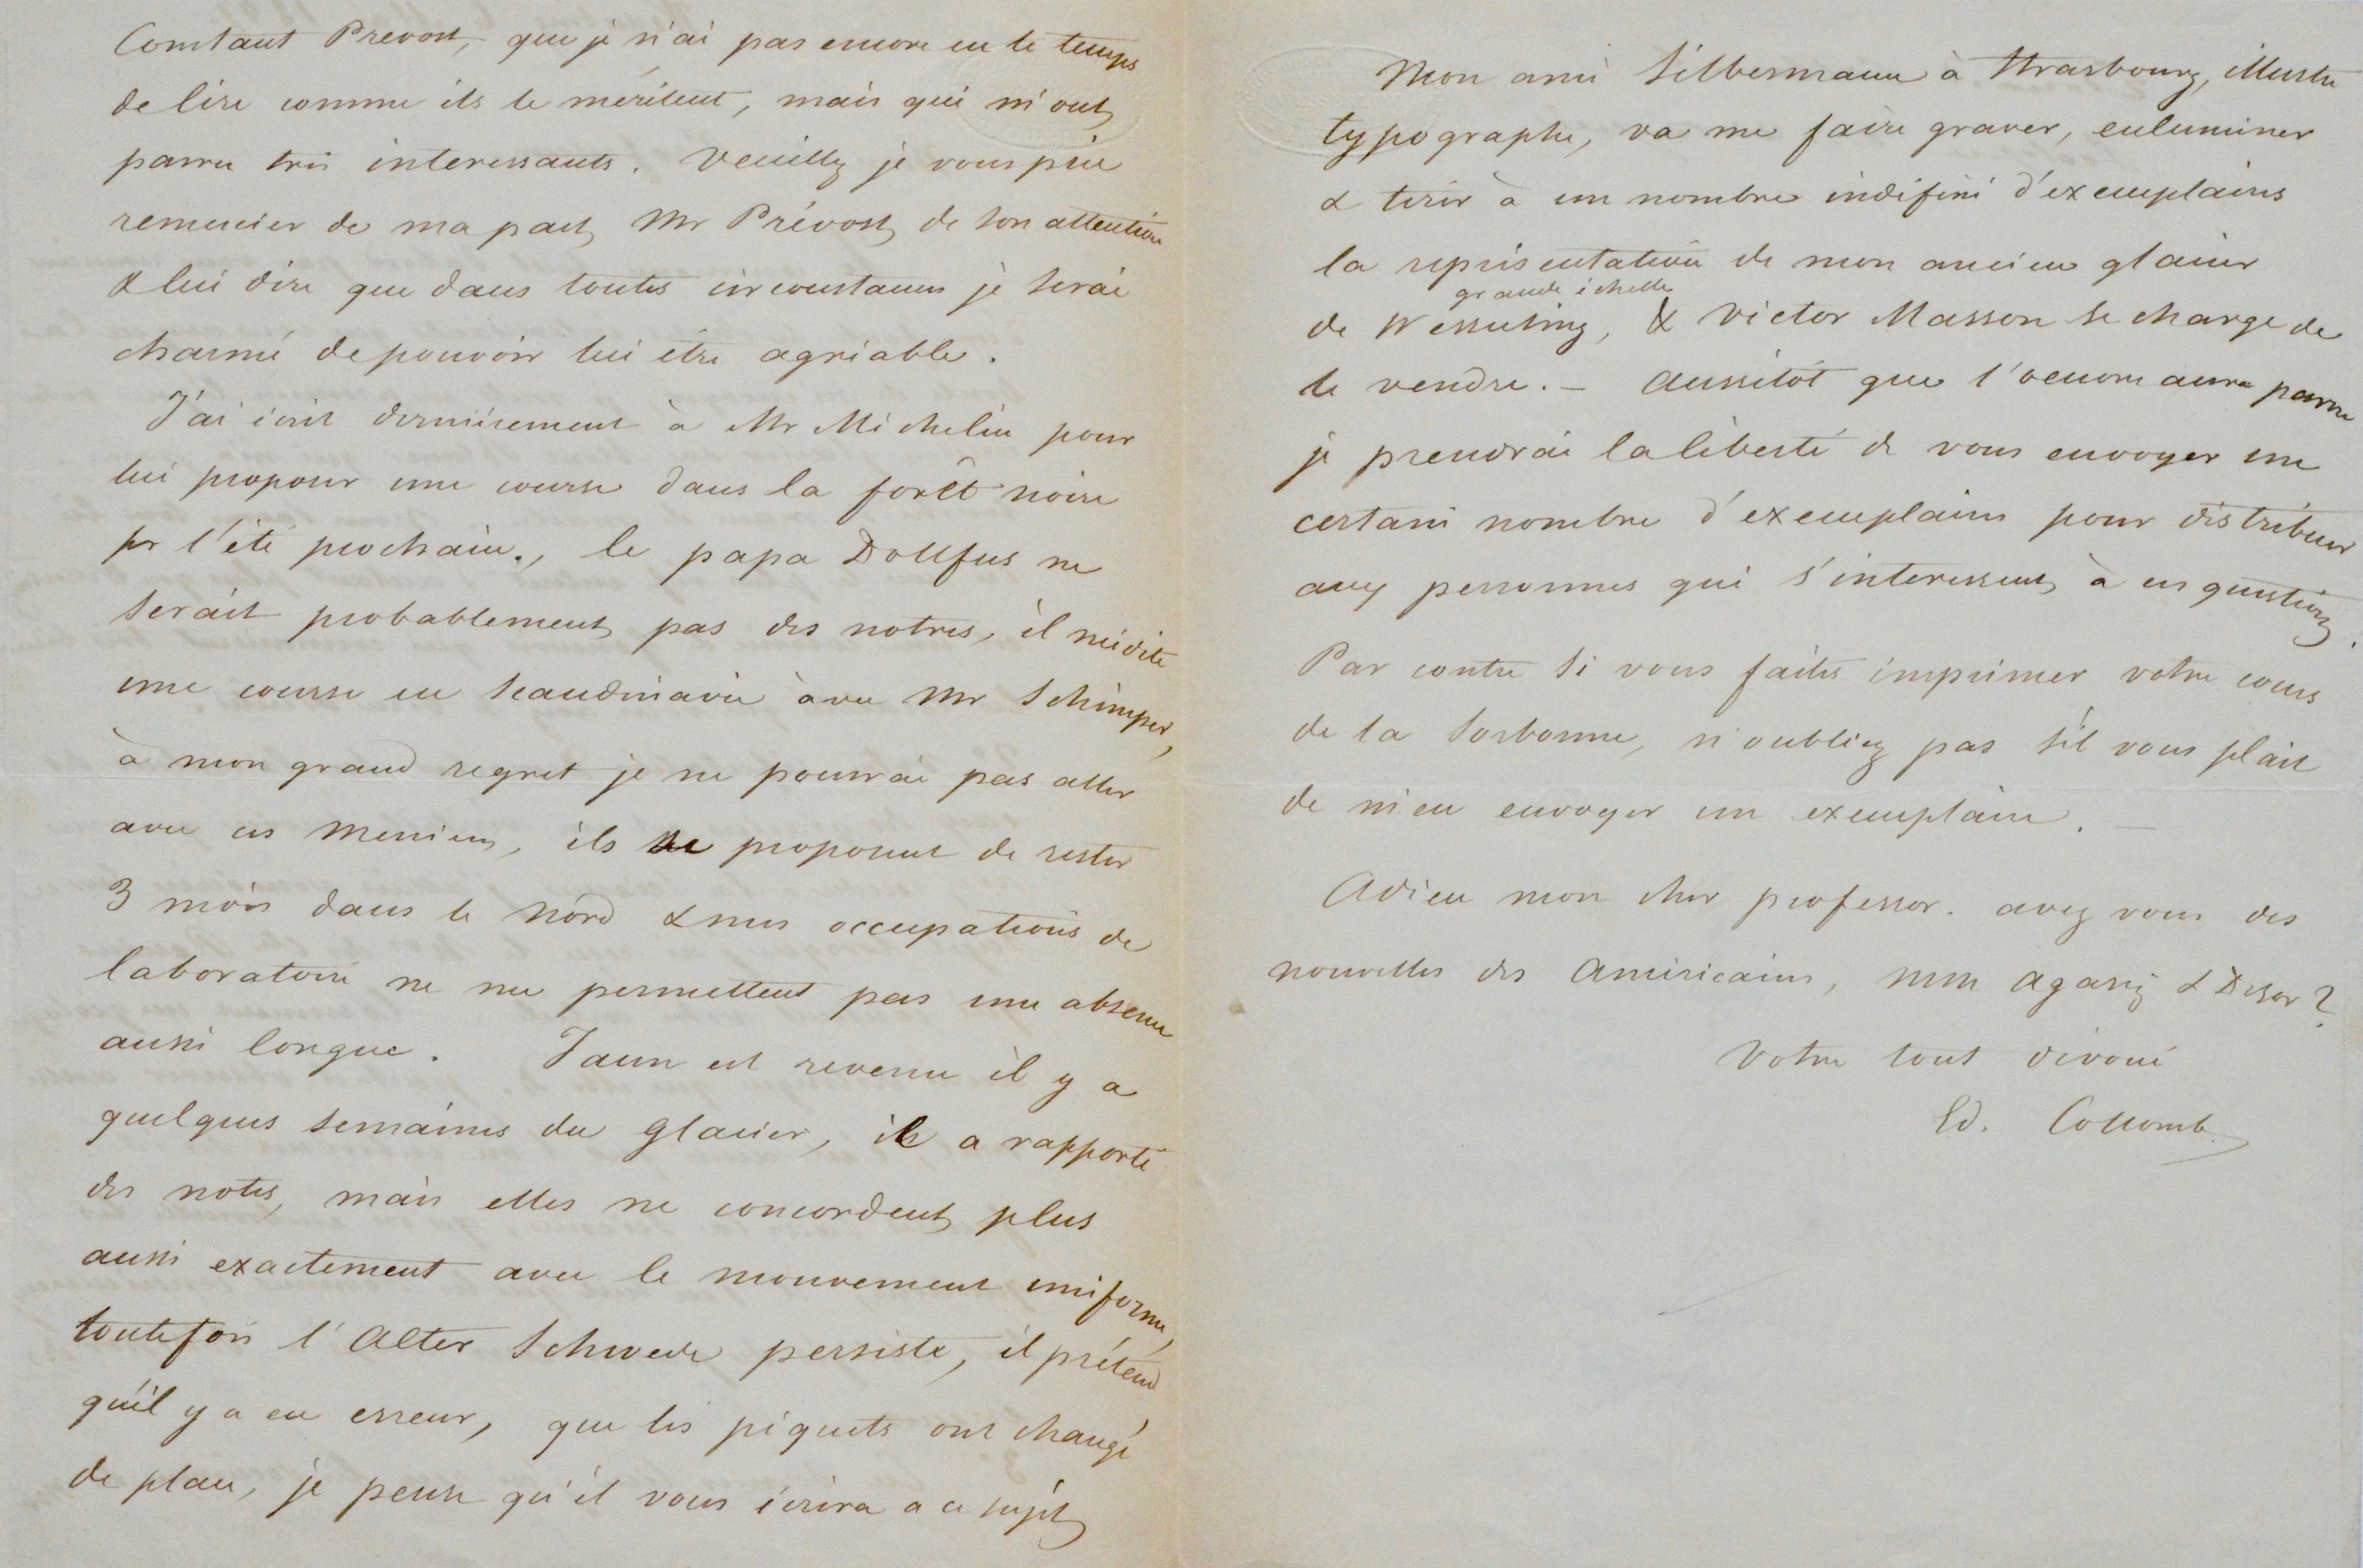 Constant Prevost, que je n'ai pas encore eu le temps
de lire comme ils le méritent, mais qui m'ont
parru très interessants. Veuillez je vous prie
remercier de ma part Mr Prévost de son attention
& lui dire que dans toutes circonstances je serai
charmé de pouvoir lui être agréable.
J'ai écrit dernièrement à Mr Michelin pour
lui proposer une course dans la forêt noire
pr l'été prochain, le papa Dollfus ne
serait probablement pas des notres, il médite
une course en Scandinavie avec Mr Schimper,
à mon grand regret je ne pourrai pas aller
avec ces Messieurs, ils se proposent de rester
3 mois dans le Nord & mes occupations de
laboratoire ne me permettent pas une absence
aussi longue. Jaun est revenu il y a
quelques semaines du Glacier, il a rapporté
des notes, mais elles ne concordent plus
aussi exactement avec le mouvement uniforme,
toutefois l'Alter Schwede persiste, il prétend
qu'il y a eu erreur, que les piquets ont changé
de place, je pense qu'il vous écrira a ce sujet
Mon ami Silbermann à Strasbourg, illustre
typographe, va me faire graver, enluminer
& tirer à un nombre indéfini d'exemplaires
la représentation de mon ancien glacier
grande échelle
de Wesserling, & Victor Masson se charge de
le vendre. — Aussitôt que l'oeuvre aura parru
je prendrai la liberté de vous envoyer un
certain nombre d'exemplaires pour distribuer
aux personnes qui s'interessent à ces questions.
Par contre si vous faites imprimer votre cours
de la Sorbonne, n'oubliez pas s'il vous plait
de m'en envoyer un exemplaire. —
Adieu mon cher professor. avez vous des
nouvelles des Américains, MM Agasiz & Desor?
Votre tout dévoué
Ed. Collomb